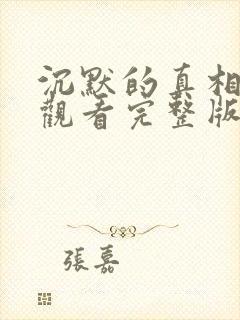 沉默的真相
觀看完整版
張嘉